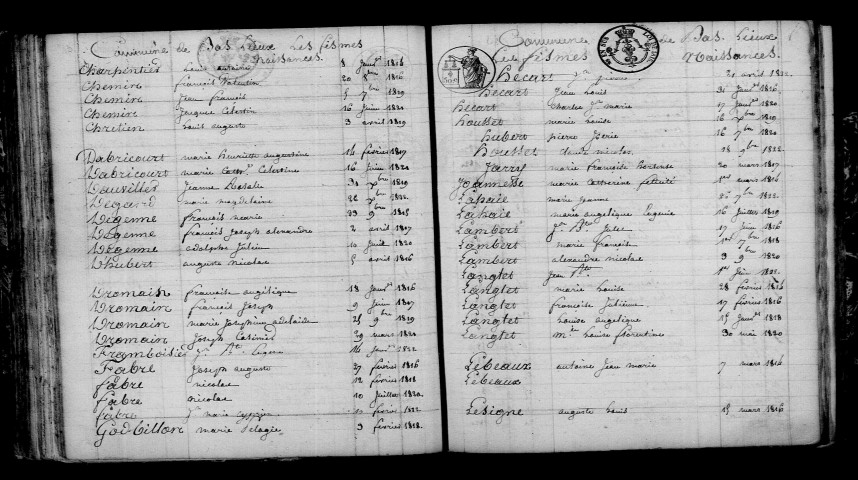 Commune de Bas Lieux Les fismes
Naissances.
Charpentier Louis antoine 8 Janvr 1816
Chemin françois Valentin 20 8bre 1816
Chemin Jean françois 5 7bre 1819
Chemin Jacques Celestin 16 Juin 1820
Chretien Louis auguste 3 avril 1819
Dabricourt marie henriette augustine 14 fevrier 1817
Dabricourt marie Celestine 16 Juin 1820
Dauviller Jeanne Rosalie 30 1819
Degard marie magdelaine 26 1822
Degenne françois marie 23 9bre 1815
Degenne françois Joseph alexandre 2 avril 1817
Degenne adolphe Julien 10 Juil 1820
Dhubert auguste nicolas 5 avril 1816
Dromain françoise angelique 18 Janvr 1816
Dromain françois Joseph 9 Juin 1817
Dromain marie Josephine adelaide 25 9bre 1819
Dromain Joseph Casimir 29 mars 1820
Framboisier Jn Bte Eugene 16 Janvr 1822
Fabre Joseph auguste 27 fevrier 1816
fabre nicolas 12 fevrier 1818
fabre nicolas 10 Juillet 1820
fabre Jn marie fevrier 1822
Godbillon marie Pelagie 3 fevrier 1818.
Commune de Bas Lieux
Les fismes Naissances.
hecart Jn pierre 21 avril 1822.
hecart Jean Louis 31 Janvr 1816
hecart Charles Jn marie 17 Janvr 1820
housset marie Louise 16 1819
hubert pierre 16 7bre 1820
housset nicolas 18 9bre 1822
Jarry marie françoise hortense 20 mars 1817
Joannesse marie Catherine felicité 1er mars 1816
Lahaie marie Jeanne 20 7bre 1822
Lahaie marie angelique Eugenie 16 Juillet 1819
Lambert Jn Bte Jules 17 Juin 1816
Lambert marie françoise 1er 7bre 1818
Lambert alexandre nicolas 3 9bre 1820
Langlet Jean Bte 1er Juin 1822
Langlet marie Louise 28 fevrier 1816
Langlet françoise Julienne 17 fevrier 1816
Langlet Louise angelique 15 Janvr 1818
Langlet Louise florentine 30 mai 1820
Lebeaux antoine Jean marie 7 mars 1816
Lebeaux
Lesigne auguste Louis 15 mars 1816